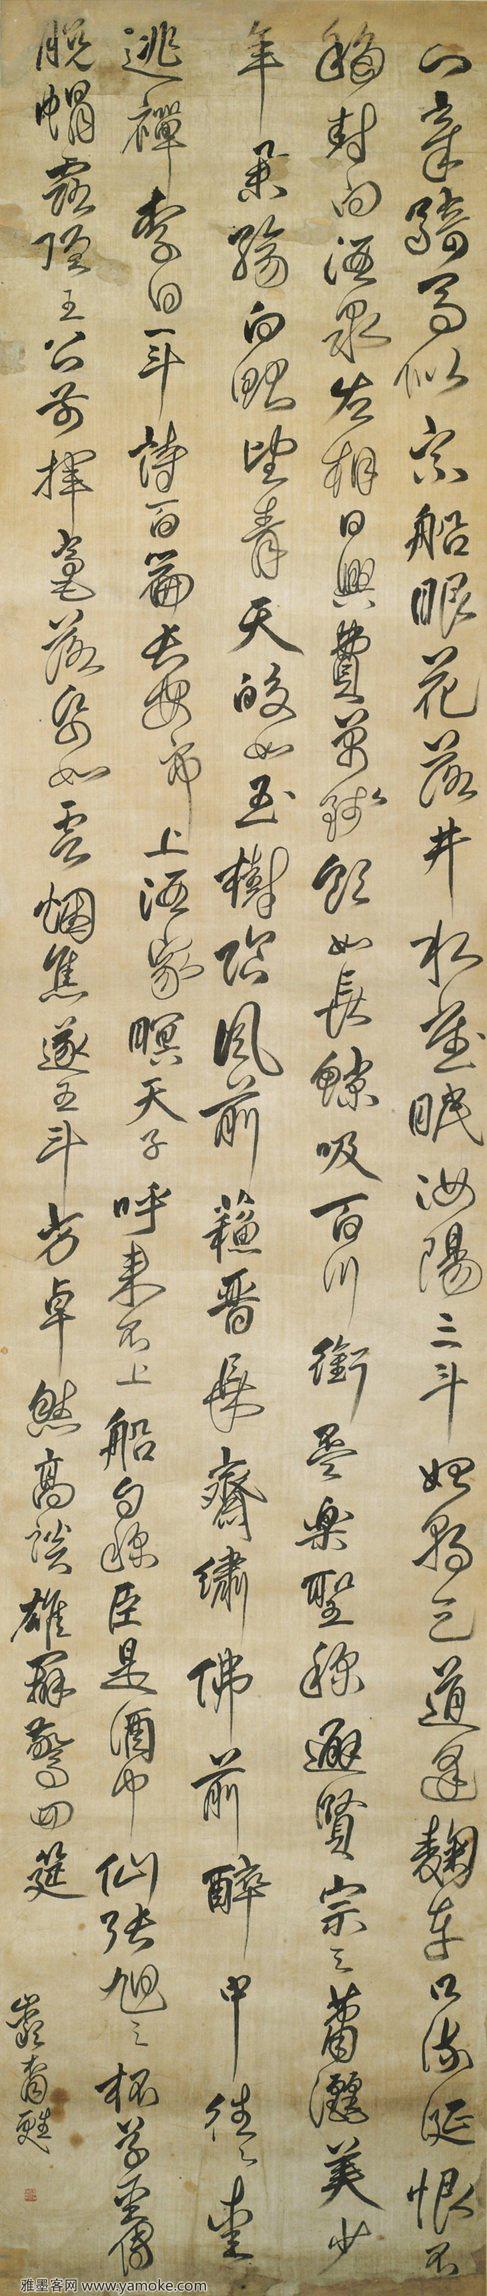 知章騎馬似乘船眼花落井水底眠汝陽三斗始朝天道逢麴車口流涎恨不
移封向酒泉左相日興費萬錢飲如長鯨吸百川銜盃樂聖稱避賢宗之蕭灑美少
年舉觴白眼望青天皎如玉樹臨風前蘇晉長齋繡佛前醉中往往愛
逃禪李白一斗詩百篇長安市上酒家瞑天子呼來不上船自稱臣是酒中仙張旭三杯草聖傳
脫帽露頂王公前揮毫落紙如雲烟焦遂五斗方卓然高談雄辯驚四筵
雅墨客网 www.yamoke.com